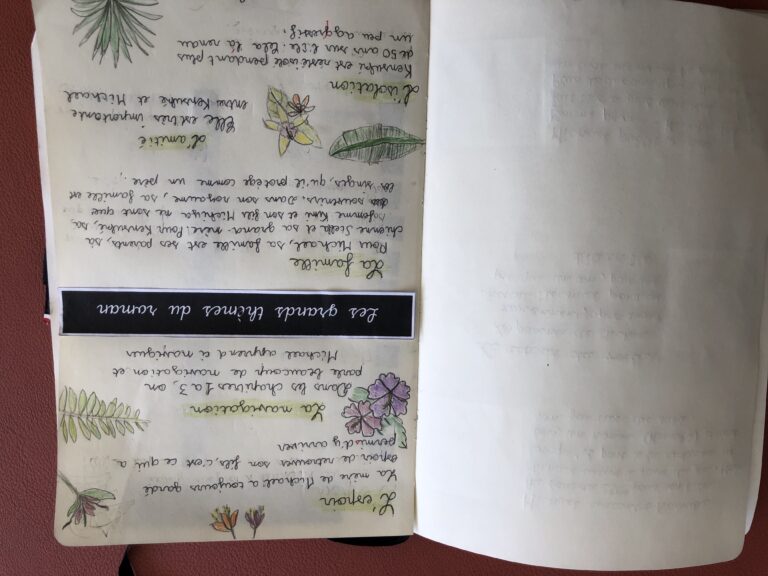 L'espoir
La mère de Michael a toujours gardé
espoir de retrouver son fils, c'est ce qui a
permis d'y arriver
La navigation
Dans les chapitres 1 à 3, on
parle beaucoup de navigation et
Michael apprend à naviguer
Les grands thèmes du roman
La famille
Pour Michael, sa famille est ses parents, sa
chienne Stella et sa grand-mère. Pour Kensuké, sa
femme Kimi et son fils Michiya ne sont que
souvenirs. Dans son royaume, sa famille est
les singes, qu'il protège comme un père.
L'amitié
Elle est très importante
entre Kensuké et Michael
L'isolation
Kensuké est resté isolé pendant plus
de 50 ans sur l'île. Cela l'a rendu
un peu aggressif.